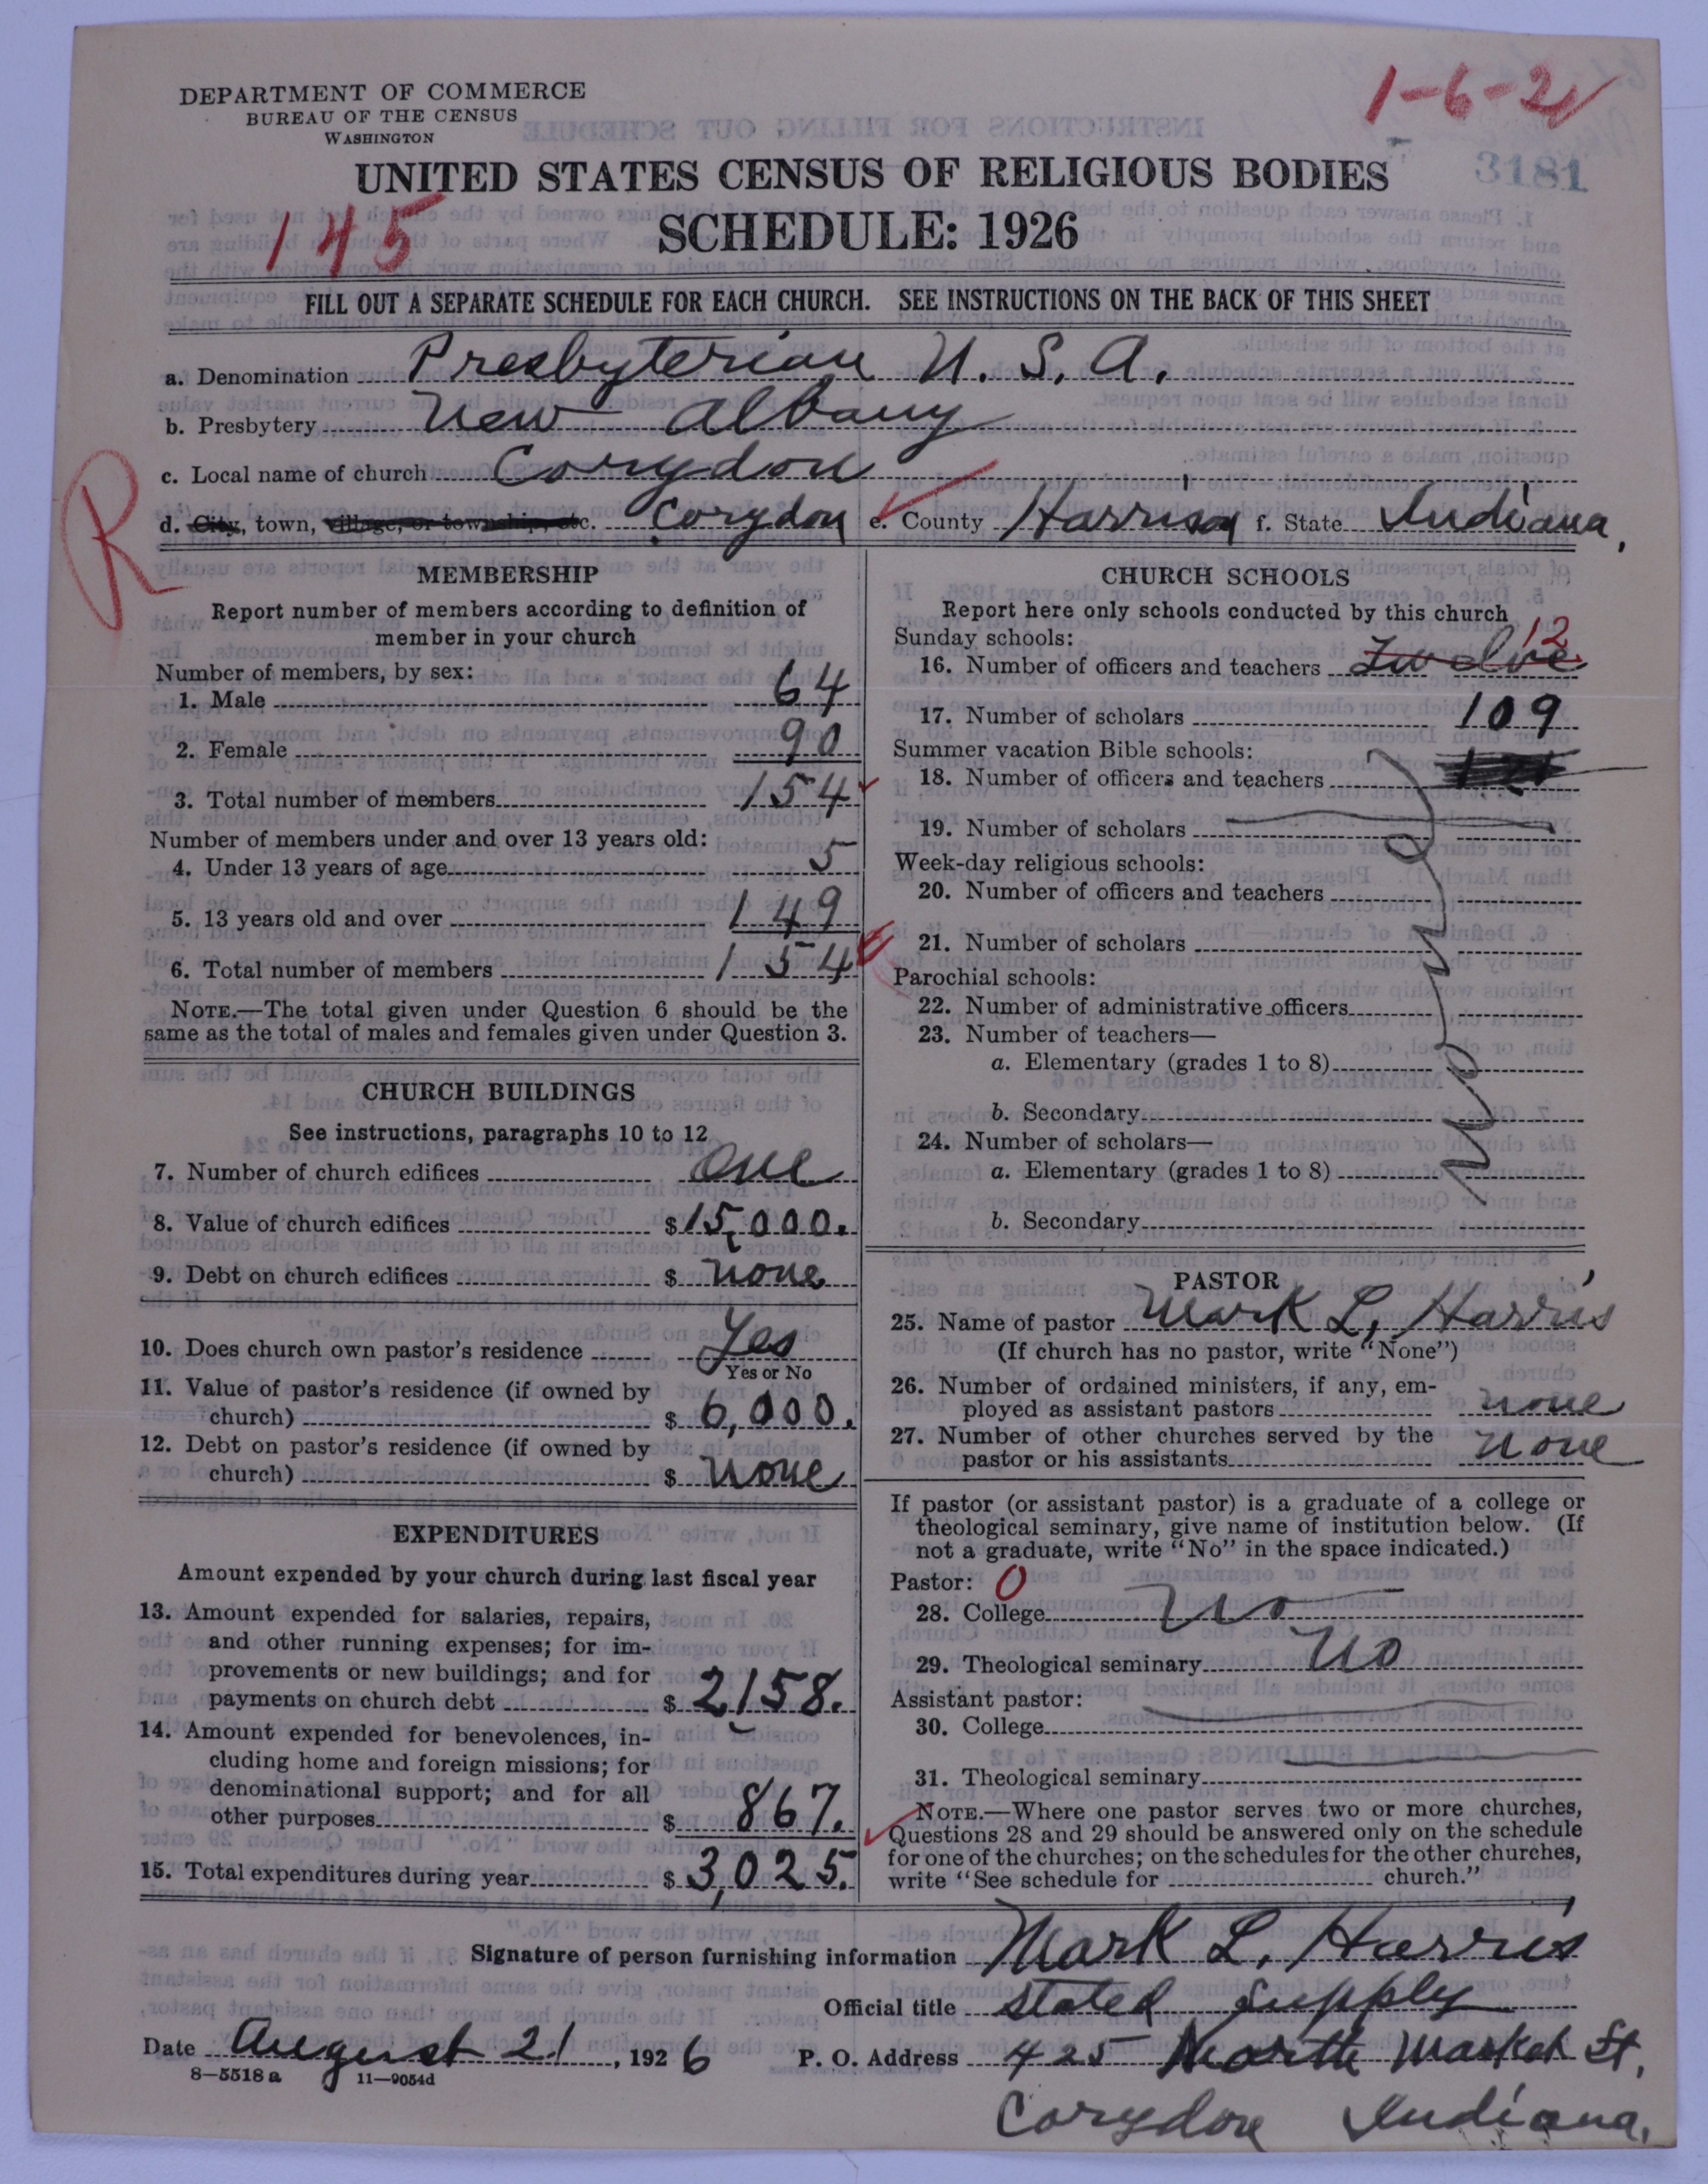 1-6-2
DEPARTMENT OF COMMERCE
BUREAU OF THE CENSUS
WASHINGTON
3181
UNITED STATES CENSUS OF RELIGIOUS BODIES
145
SCHEDULE: 1926
FILL OUT A SEPARATE SCHEDULE FOR EACH CHURCH. SEE INSTRUCTIONS ON THE BACK OF THIS SHEET
a. Denomination Presbyterian U. S. A.
b. Presbytery New Albany
c. Local name of church Corydon
R
d. City, town, village, or township, etc. Corydon e. County Harrison f. State Indiana,
MEMBERSHIP
Report number of members according to definition of
member in your church
Number of members, by sex:
1. Male 64
2. Female 90
3. Total number of members 154
Number of members under and over 13 years old:
4. Under 13 years of age 5
5. 13 years old and over 149
6. Total number of members 154
NOTE.—The total given under Question 6 should be the
same as the total of males and females given under Question 3.
CHURCH BUILDINGS
See instructions, paragraphs 10 to 12
7. Number of church edifices One
8. Value of church edifices $15,000.
9. Debt on church edifices $ none
10. Does church own pastor's residence Yes
Yes or No
11. Value of pastor's residence (if owned by
church) $ 6,000.
12. Debt on pastor's residence (if owned by
church) $ none
EXPENDITURES
Amount expended by your church during last fiscal year
13. Amount expended for salaries, repairs,
and other running expenses; for im-
provements or new buildings; and for
payments on church debt $ 2158.
14. Amount expended for benevolences, in-
cluding home and foreign missions; for
denominational support; and for all
other purposes $ 867.
15. Total expenditures during year $ 3,025.
CHURCH SCHOOLS
Report here only schools conducted by this church
Sunday schools:
12
16. Number of officers and teachers Twelve
17. Number of scholars 109
Summer vacation Bible schools:
18. Number of officers and teachers
19. Number of scholars
Week-day religious schools:
20. Number of officers and teachers
21. Number of scholars
Parochial schools:
22. Number of administrative officers
23. Number of teachers—
a. Elementary (grades 1 to 8)
b. Secondary
24. Number of scholars—
a. Elementary (grades 1 to 8)
b. Secondary
PASTOR
25. Name of pastor Mark L, Harris
(If church has no pastor, write "None")
26. Number of ordained ministers, if any, em-
ployed as assistant pastors none
27. Number of other churches served by the
pastor or his assistants none
If pastor (or assistant pastor) is a graduate of a college or
theological seminary, give name of institution below. (If
not a graduate, write "No" in the space indicated.)
Pastor: 0
28. College No
29. Theological seminary No
Assistant pastor:
30. College
31. Theological seminary
NOTE.—Where one pastor serves two or more churches,
Questions 28 and 29 should be answered only on the schedule
for one of the churches; on the schedules for the other churches,
write "See schedule for church."
Signature of person furnishing information Mark L, Harris
Official title Stated Supply
Date August 21, 1926 P. O. Address 425 North Market St,
8—5518a 11—9054d
Corydon Indiana,